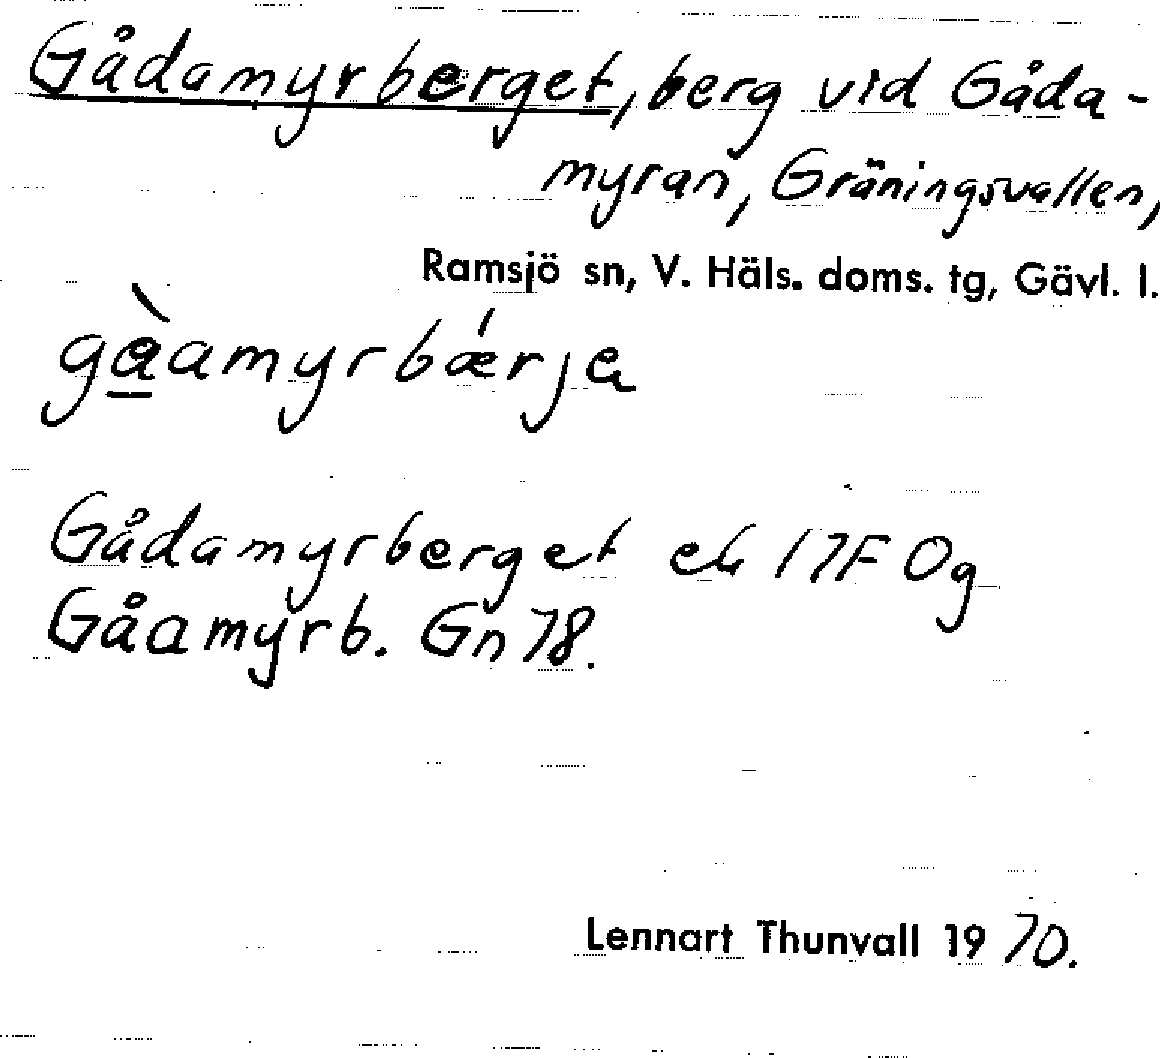 Gådamyrberget, berg vid Gåda-
myran, Gräningsvallen,
Ramsjö sn, V. Häls. doms. tg, Gävl. l.
gàamyrbǽrja
Gådamyrberget ek 17F 0g
Gåamyrb. Gn 78.
Lennart Thunvall 1970.